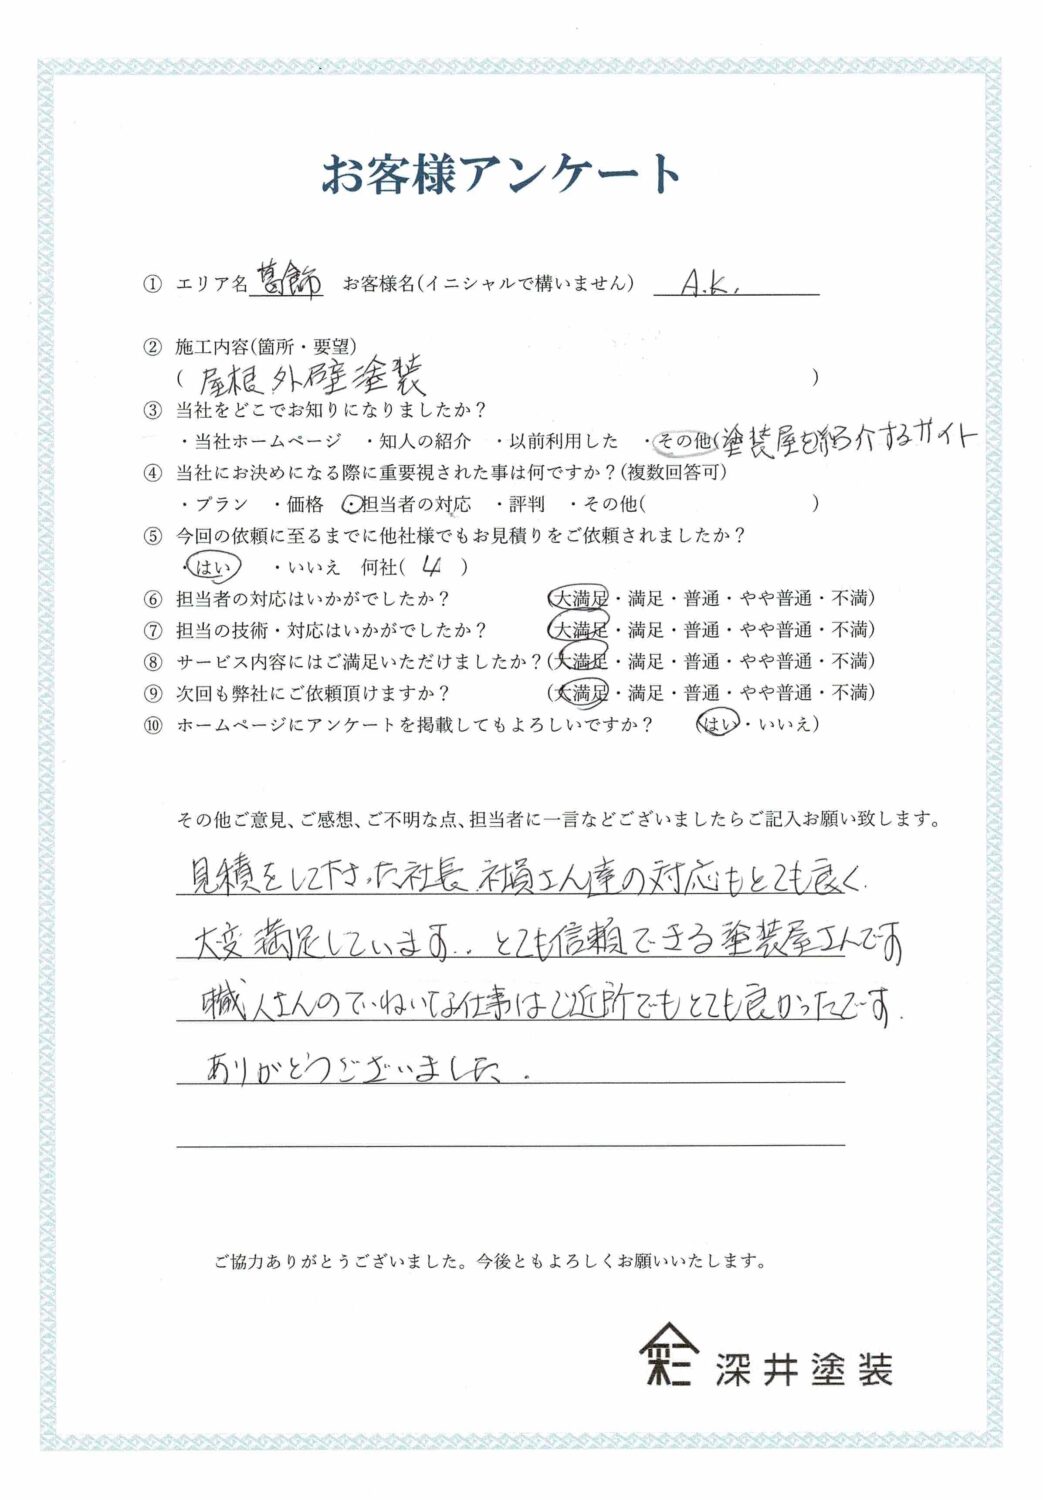 お客様アンケート
① エリア名 葛飾 お客様名(イニシャルで構いません) A.K.
② 施工内容(箇所・要望)
( 屋根 外壁塗装 )
③ 当社をどこでお知りになりましたか？
・当社ホームページ ・知人の紹介 ・以前利用した ・その他(塗装屋を紹介するサイト
④ 当社にお決めになる際に重要視された事は何ですか？(複数回答可)
・プラン ・価格 ・担当者の対応 ・評判 ・その他( )
⑤ 今回の依頼に至るまでに他社様でもお見積りをご依頼されましたか？
・はい ・いいえ 何社( 4 )
⑥ 担当者の対応はいかがでしたか？ (大満足・満足・普通・やや普通・不満)
⑦ 担当の技術・対応はいかがでしたか？ (大満足・満足・普通・やや普通・不満)
⑧ サービス内容にはご満足いただけましたか？(大満足・満足・普通・やや普通・不満)
⑨ 次回も弊社にご依頼頂けますか？ (大満足・満足・普通・やや普通・不満)
⑩ ホームページにアンケートを掲載してもよろしいですか？ (はい・いいえ)
その他ご意見、ご感想、ご不明な点、担当者に一言などございましたらご記入お願い致します。
見積をして下さった社長 社員さん達の対応もとても良く.
大変満足しています.. とても信頼できる塗装屋さんです
職人さんのていねいな仕事はご近所でもとても良かったです.
ありがとうございました.
ご協力ありがとうございました。今後ともよろしくお願いいたします。
深井塗装